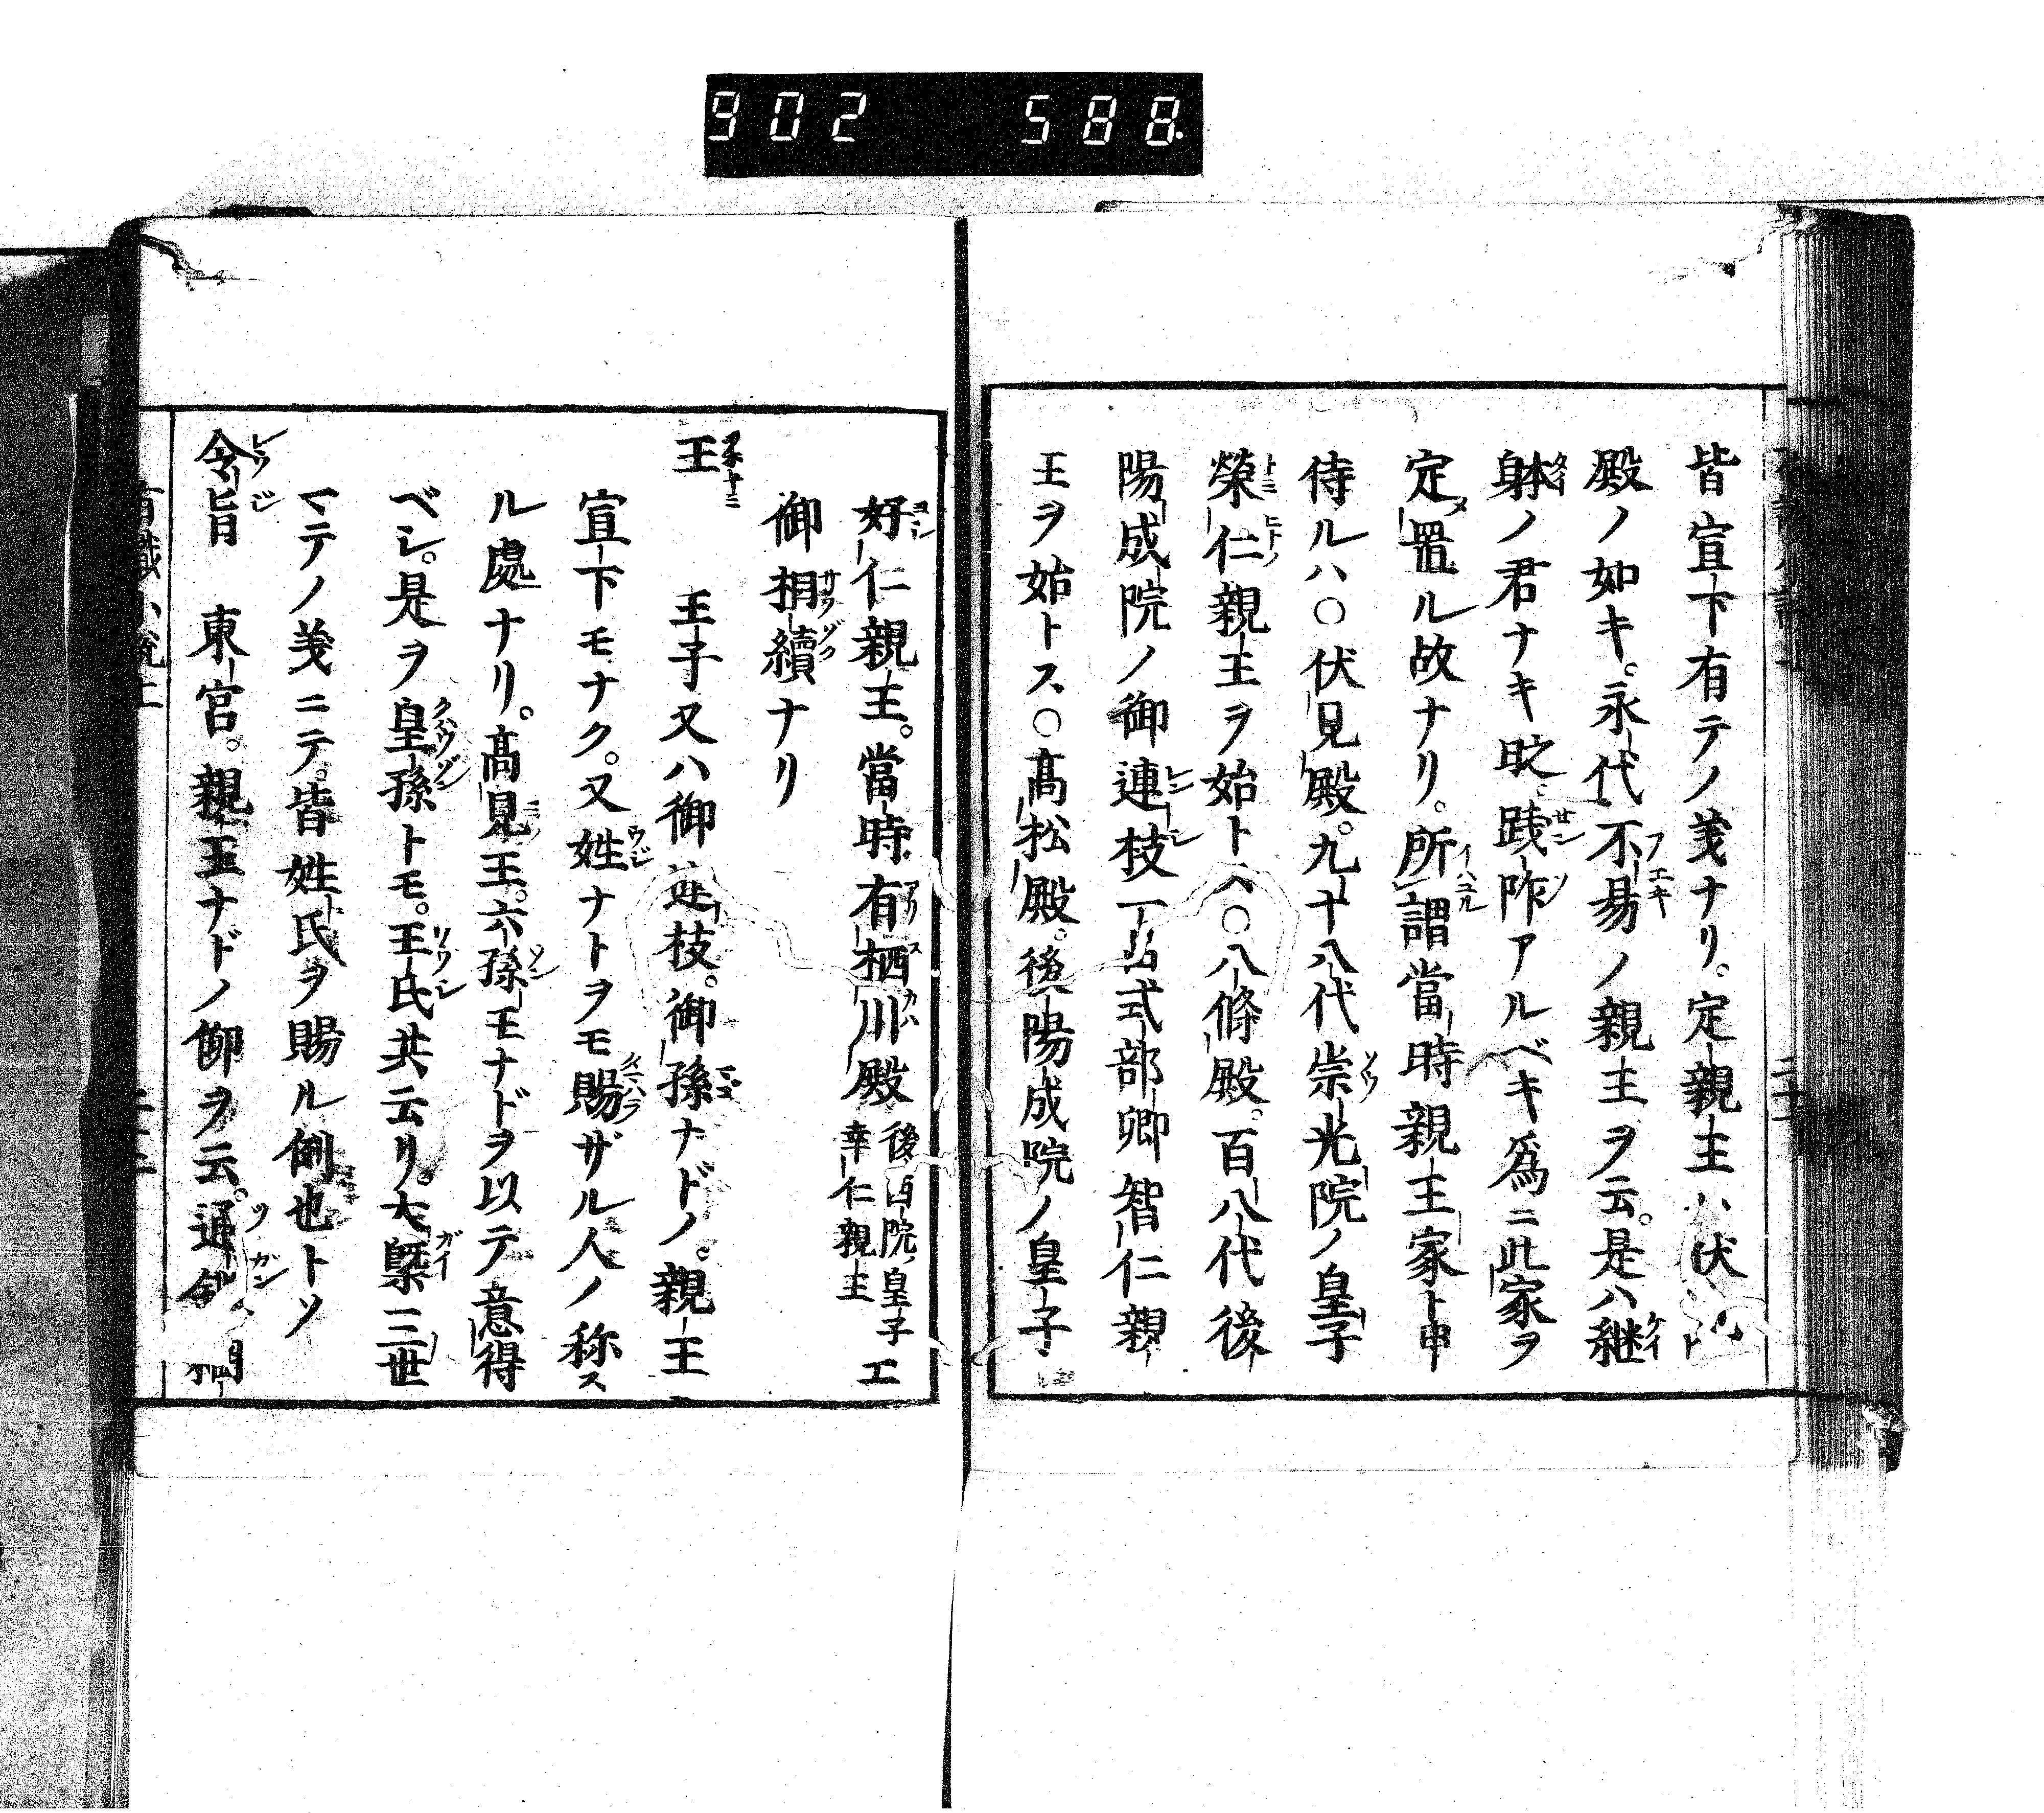 902 588.
皆宣下有テノ義ナリ。定親王ハ伏
殿ノ如キ。永代不易ノ親王ヲ云。是ハ継
躰ノ君ナキ時。踐祚アルベキ為ニ此家ヲ
定置ル故ナリ。所謂當時親王家ト申
侍ルハ○伏見殿。九十八代崇光院ノ皇子
榮仁親王ヲ始トス○八條殿。百八代後
陽成院ノ御連枝一品式部卿智仁親
王ヲ始トス○髙松殿。後陽成院ノ皇子
好仁親王。當時有栖川殿後西院ノ皇子幸仁親王
御相續ナリ
王 王子又ハ御連枝。御孫ナドノ。親王
宣下モナク。又姓ナトヲモ賜ザル人ノ称ス
ル處ナリ。髙見王。六孫王ナドヲ以テ意得
ベシ。是ヲ皇孫トモ。王氏共云リ。大槩三世
マテノ義ニテ。皆姓氏ヲ賜ル例也トソ
令旨 東宮。親王ナドノ仰ヲ云。通
有職小説上